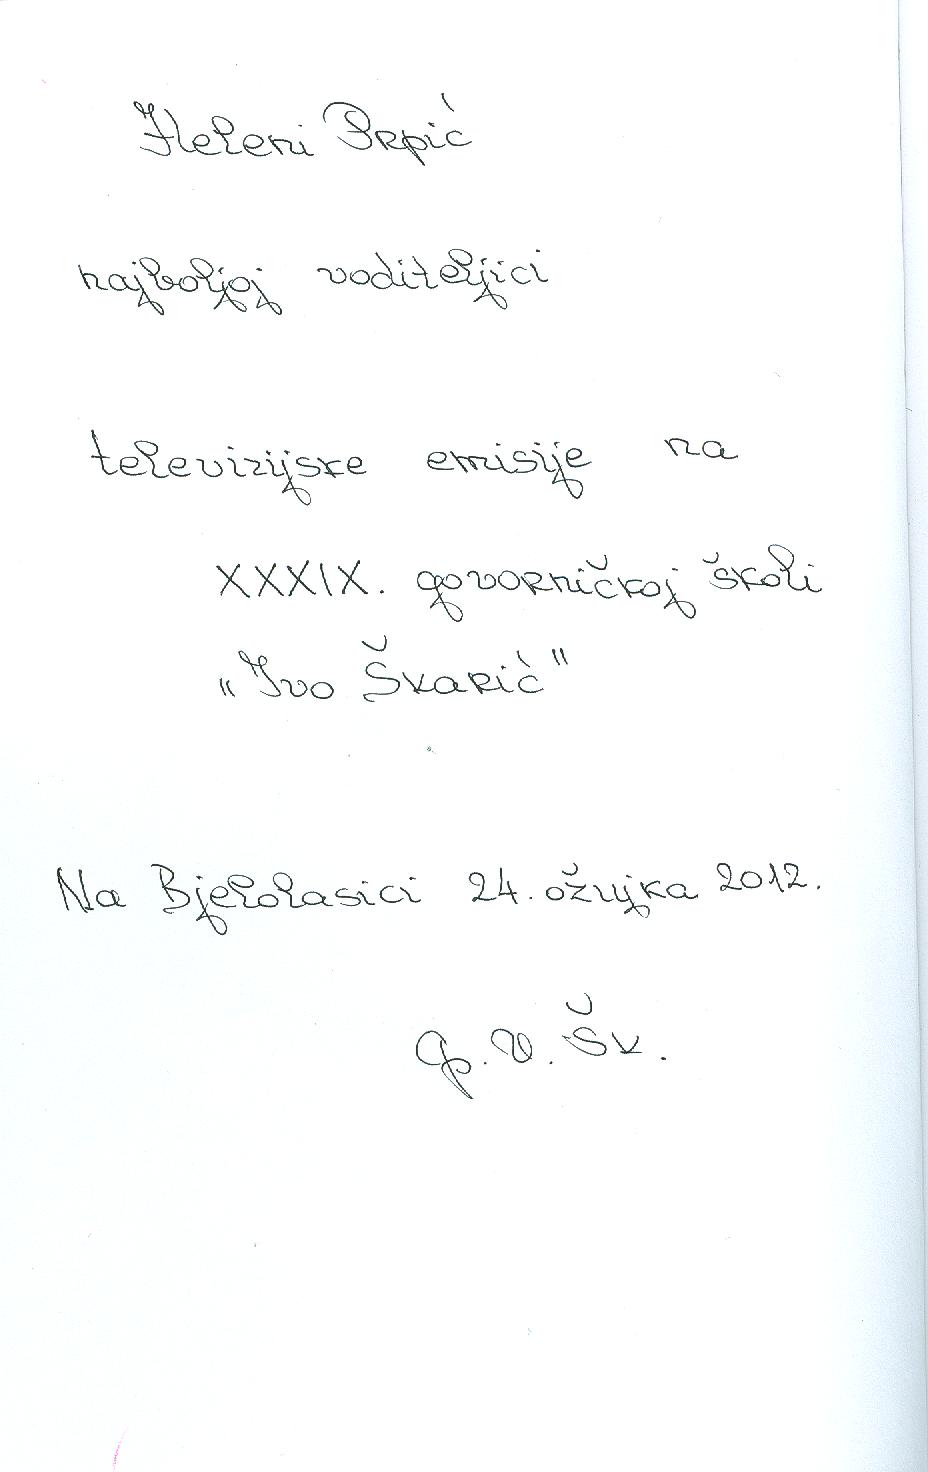 Heleni Prpić
najboljoj voditeljici
televizijske emisije na
XXXIX. govorničkoj školi
„Ivo Škarić"
Na Bjelolasici 24. ožujka 2012.
G. V. Šk.